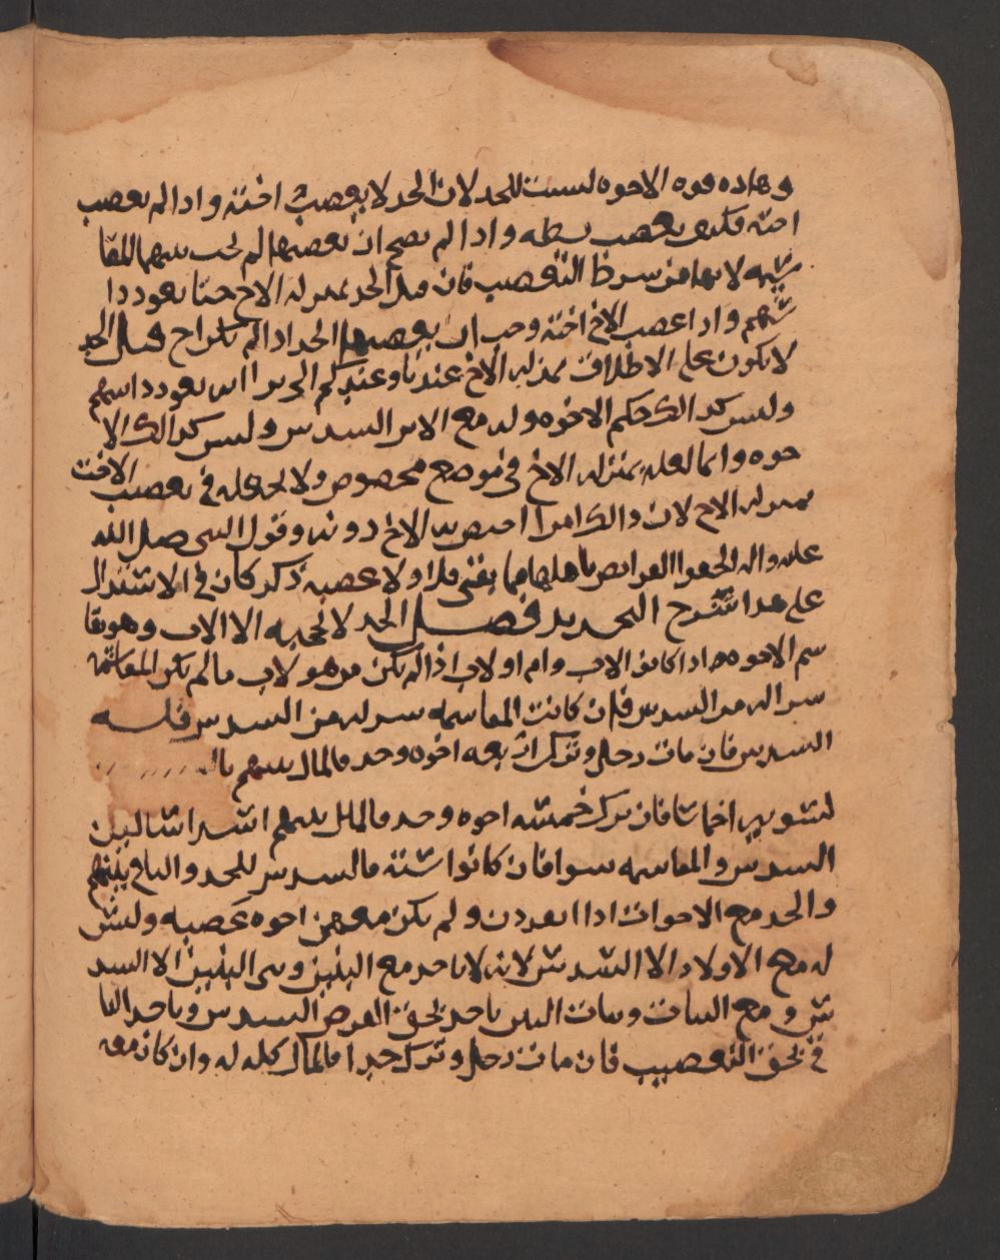 وهاذه قوه الاخوه ليست للجد لان الجد لا يعصب اخته واذا لم يعصب
اخته فكيف يعصب واذا لم يصح ان يعصبها لم يجب بينهما المقا
سمه لانها من شرط التعصيب فان قيل الجد بمنزله الاخ حتا يعود دا
سهم واذا عصب الاخ اخته وجب ان يعصبها الجد اذا لم يكن اخ قيل الجد
لا يكون على الاطلاق بمنزله الاخ عندنا وعندكم الا يعود دا سهم
وليس كذالك حكم الاخوه وله مع الابن السدس وليس كذالك الا
خوه وانما لعله بمنزله الاخ في موضع مخصوص ولا نجعله في تعصيب الاخت
بمنزله الاخ لان ذالك امرا اختص به الاخ دونه وقول النبي صلى الله
عليه واله الحقوا الفرايض باهلها فما بقي فلاولا عصبه ذكر كان في الاستدلال
على هذا شرح التجريد فصل الجد لا يحجبه الا الاب وهو يقا
سم الاخوه اذا كانوا لاب وام او لاب اذا لم يكن من هو لاب ما لم يكن المقاسمه
شرا له من السدس فان كانت المقاسمه شر له من السدس فله
السدس فان مات رجل وترك اربعه اخوه وجد فالمال بينهم بالـ
لتسويه اخماسا فان ترك خمسه اخوه وجد فالمال بينهم اسداسا لان
السدس والمقاسمه سوا فان كانوا سته فالسدس للجد والباقي بينهم
والجد مع الاخوات اذا انفردن ولم يكن معهن اخوه عصبه وليس
له مع الاولاد الا السدس لانه لا ياخذ مع البنين وبني البنين الا السد
س ومع البنات وبنات البنين ياخذ بحق الفرض السدس وياخذ البا
قي بحق التعصيب فان مات رجل وترك جدا فالمال كله له وان كان معه